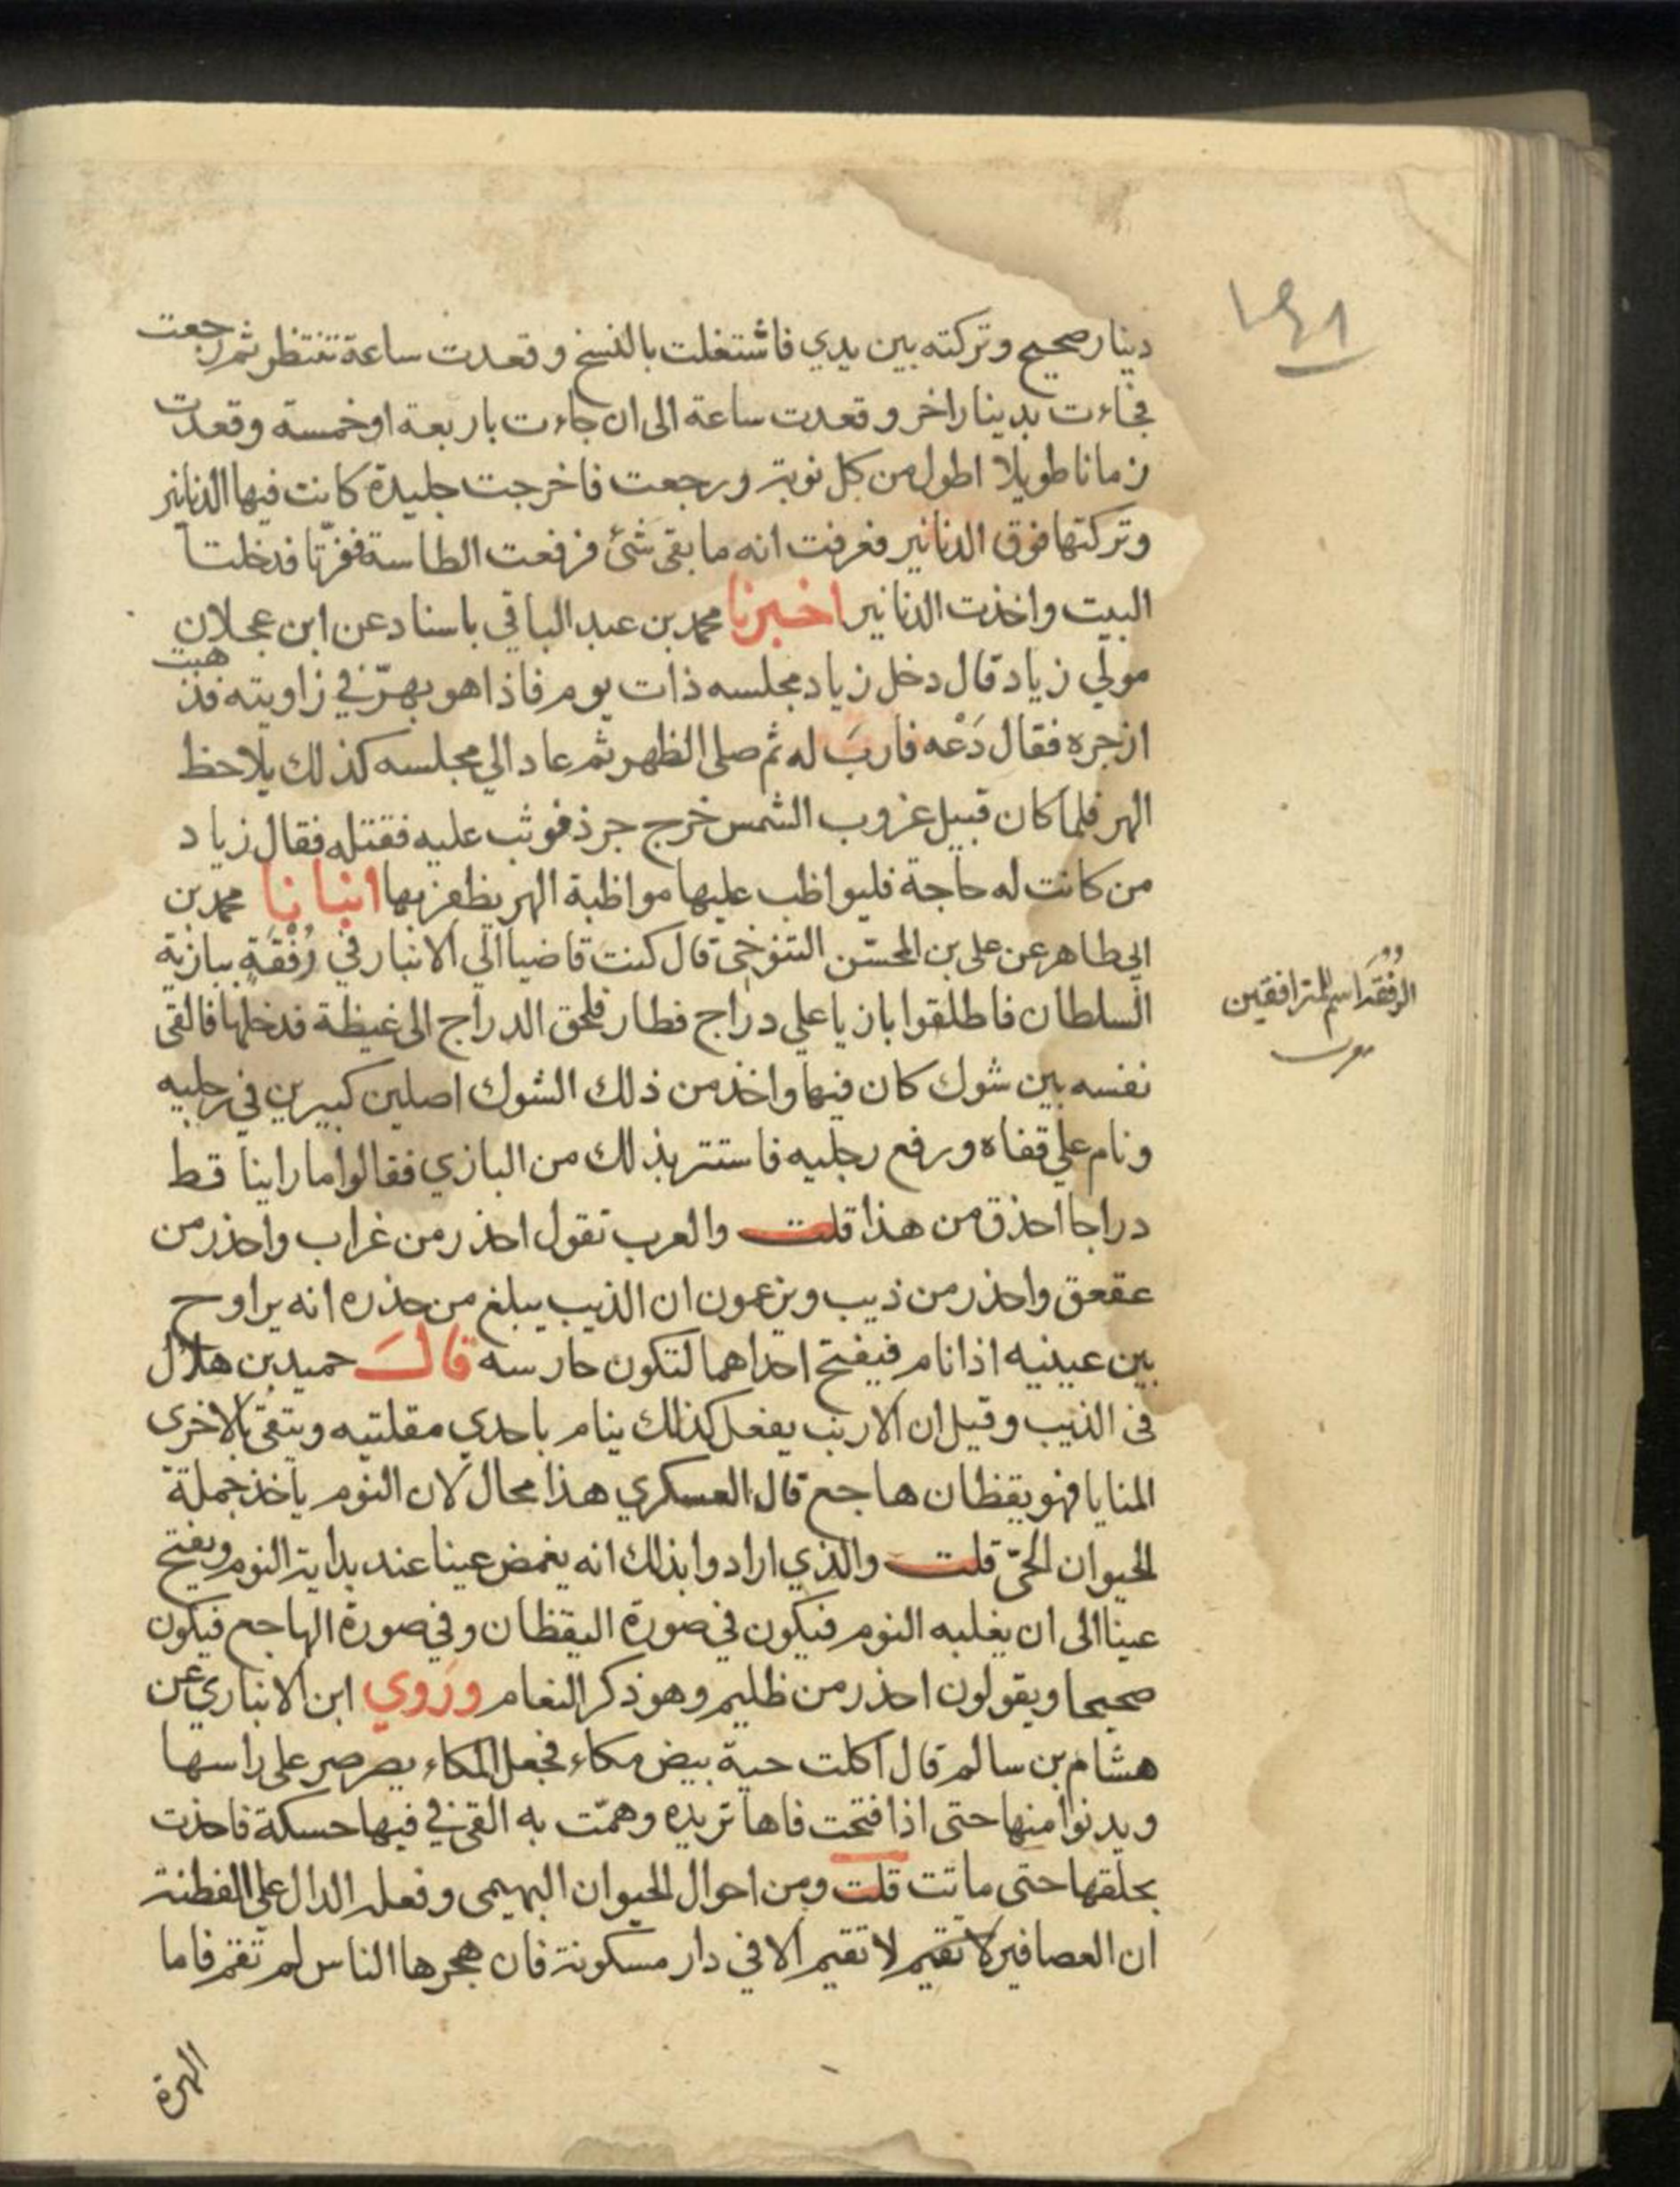 دينار صحيح وتركته بين يدي فاشتغلت بالنسخ وقعدت ساعة تنتظر ثم رجعت
فجاءت بدينار اخر وقعدت ساعة الى ان جاءت باربعة او خمسة وقعدت
زمانا طويلا اطول من كل نوبة ورجعت فاخرجت جليدة كانت فيها الدنانير
وتركتها فوق الدنانير فعرفت انه ما بقى شئ فرفعت الطاسة ففرتا فدخلتا
البيت واخذت الدنانير اخبرنا محمد بن عبد الباقي باسناد عن ابن عجلان
مولي زياد قال دخل زياد مجلسه ذات يوم فاذا هو بهرّ في زاويته فذهبت
ازجره فقال دَعْه فاربَ له ثم صلى الظهر ثم عاد الي مجلسه كذلك يلاحظ
الهر فلما كان قبيل غروب الشمس خرج جرذ فوثب عليه فقتله فقال زياد
من كانت له حاجة فليواظب عليها مواظبة الهر يظفر بها انبانا محمد بن
ابي طاهر عن على بن المحسّن التنوخي قال كنت قاضيا الي الانبار في رُفْقَةٍ ببازية
السلطان فاطلقوا بازيا علي دراج فطار فلحق الدراج الى غيظة فدخلها فالقى
نفسه بين شوك كان فيها واخذ من ذلك الشوك اصلين كبيرين في رجليه
ونام علي قفاه ورفع رجليه فاستتر بذلك من البازي فقالوا ما راينا قط
دراجا احذق من هذا قلت والعرب تقول احذر من غراب واحذر من
عقعق واحذر من ذيب ويزعمون ان الذيب يبلغ من حذره انه يراوح
بين عينيه اذا نام فيفتح احداهما لتكون حارسه قالَ حميد بن هلال
فى الذيب وقيل ان الارنب يفعل كذلك ينام باحدي مقلتيه ويتقي بالاخرى
المنايا فهو يقظان هاجع قال العسكري هذا محال لان النوم ياخذ جملة
الحيوان الحىّ قلت والذي ارادوا بذلك انه يغمض عينا عند بداية النوم ويفتح
عينا الى ان يغلبه النوم فيكون في صورة اليقظان وفي صورة الهاجع فيكون
صحيحا ويقولون احذر من ظليم وهو ذكر النعام ورَوي ابن الانباري عن
هشام بن سالم قال اكلت حية بيض مكاء فجعل المكاء يصرصر على راسها
ويدنوا منها حتى اذا فتحت فاها تريده وهمّت به القى في فيها حسكة فاخذت
بحلقها حتى ماتت قلت ومن احوال الحيوان البهيمى وفعله الدال علي الفطنة
ان العصافير لا تقيم لا تقيم الا في دار مسكونة فان هجرها الناس لم تقم فاما
الهرة
١٤١
الرُفْقَة اسم للمترافقين